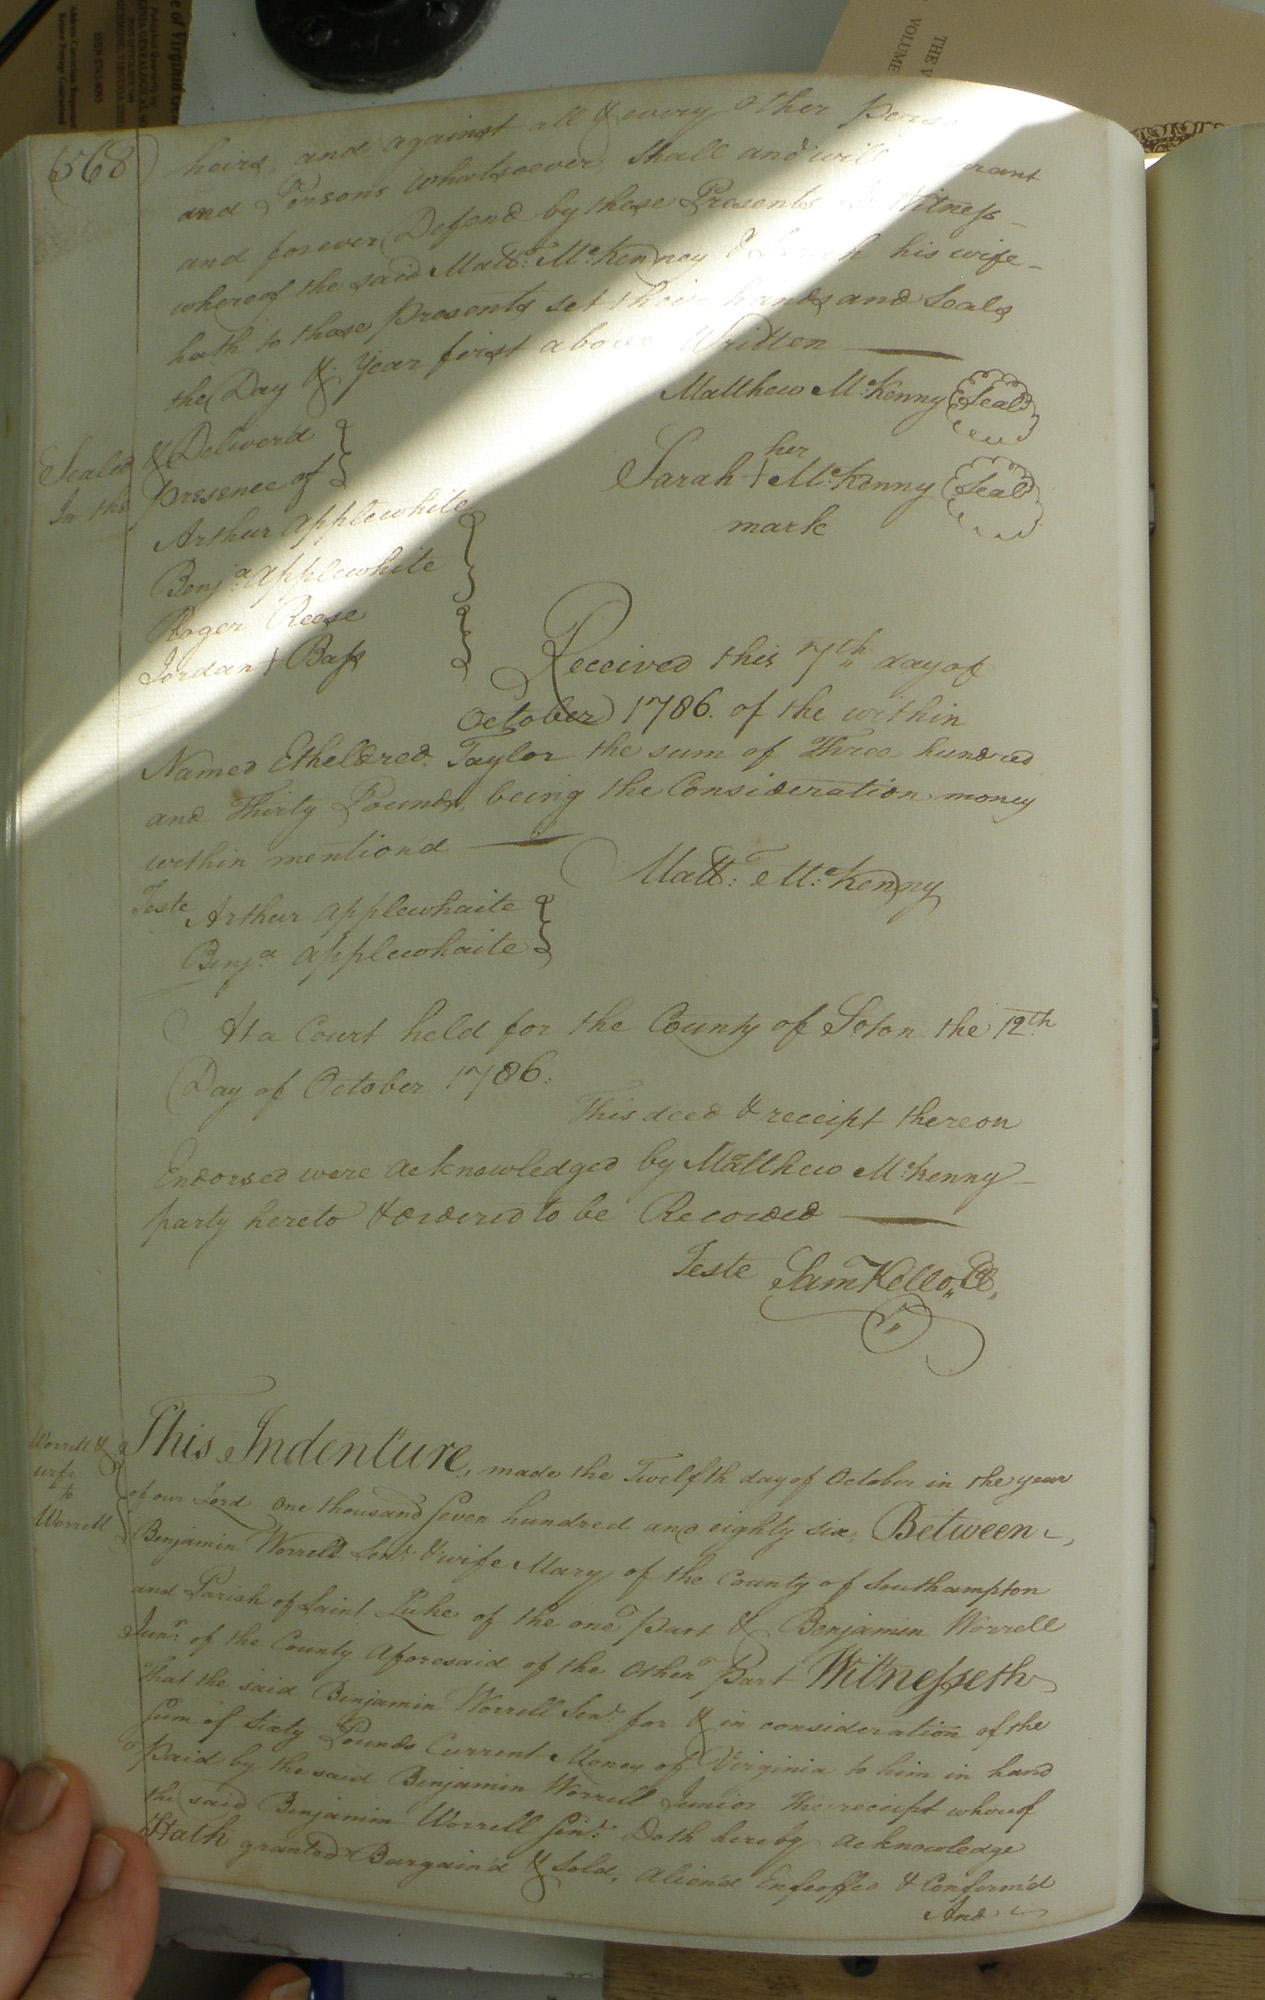 (568)
heirs, and against all & every other Perso
and Persons whatsoever, shall and will rrant
and forever Defend by these Presents In Witness
whereof the said Matt: McKenney & Sarah his wife
hath to these Presents set their hands and Seals
the Day & Year first above Written
Matthew McKenny Seal
Sealed & Deliver'd
In the presence of
her
Sarah + McKenny Seal
mark
Arthur Applewhite
Benja Applewhite
Roger Reese
Jordan + Bass
Received this 7th day of
October 1786. of the within
Named Etheldred Taylor the sum of Three hundred
and Thirty Pounds, being the Consideration money
within mention'd
Matt: McKenny
Teste Arthur Applewhaite
Benja Applewhaite
At a Court held for the County of Soton the 12th
Day of October 1786.
This deed & receipt thereon
Endorsed were acknowledged by Matthew McKenny
party hereto & ordered to be Recorded
Teste Sam Kello, Cl,
Worrell &
wife
to
Worrell
This Indenture, made the Twelfth day of October in the year
of our Lord one thousand Seven hundred and eighty six, Between
Benjamin Worrell Senr & wife Mary of the County of Southampton
and Parish of Saint Luke of the one Part & Benjamin Worrell
Junr of the County Aforesaid of the Other Part Witnesseth
That the said Benjamin Worrell Senr for & in consideration of the
Sum of Sixty Pounds Current Money of Virginia to him in hand
Paid by the said Benjamin Worrell Junior the receipt whereof
the said Benjamin Worrell Senr Doth hereby acknowledge
Hath granted Bargain'd & Sold, Alien'd Enfeoffed & Confirm'd
And
THE V
VOLUME
e of Virginia Ge
ISSN 0743-8095